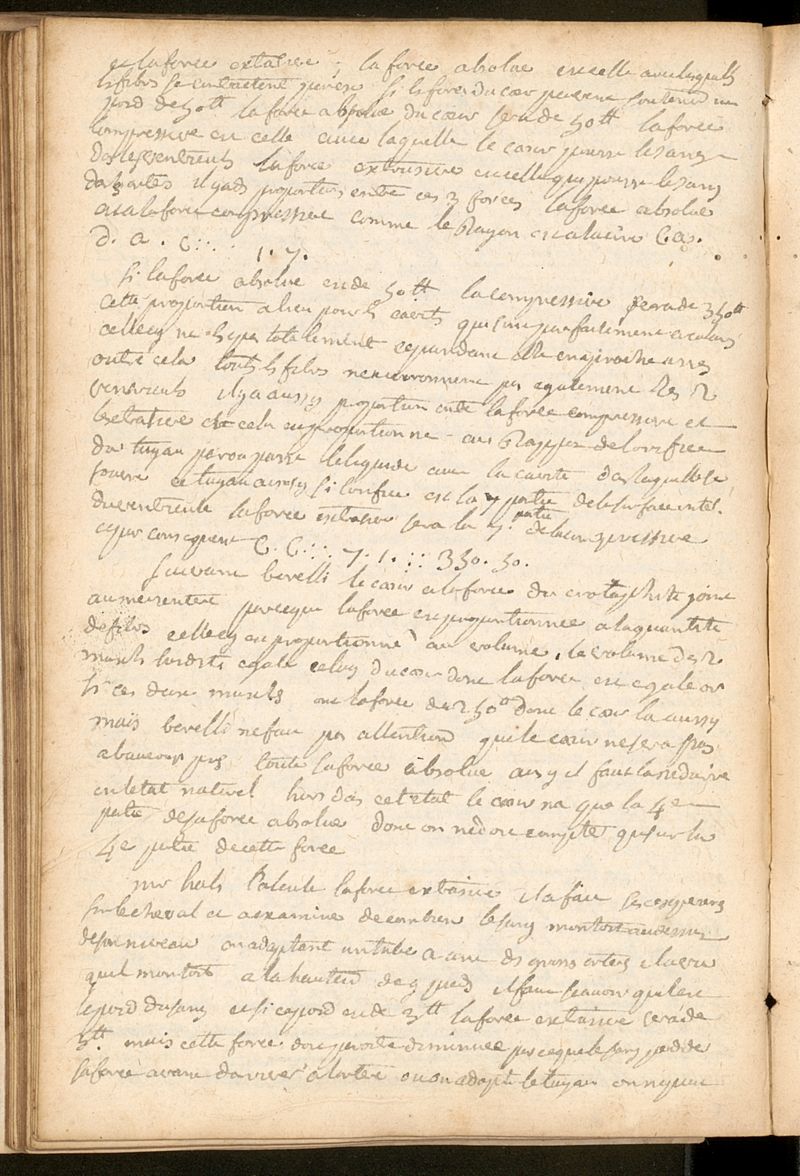 et la force extrusive ; la force absolue est celle avec laquelle
les fibres se contractent par ex si la force du cœur peut soutenir un
poid de 50 ℔ la force absolue du cœur sera de 50 ℔ la force
compressive est celle avec laquelle le cœur pousse le sang
dans les ventricules la force extrusive est celle qui pousse le sang
dans les artes il y a des proportions entre ces 3 forces la force absolue
est a la force compressive comme le Rayon est a la
D. a. C :: 1. 7.
Si la force absolue est de 50 ℔ la compressive sera de 350 ℔
cette proportion a lieu pour les cavités qui sont parfaitement
celle cy ne l'est pas totalement cependant elle en approche assez
outre cela touts les fibres n'environnent pas egalement les 2
ventricules il y a aussy proportion entre la force compressive et
lextrusive et cela est proportionné au Rapport de lorifice
du tuyau par ou passe le liquide avec la cavité dans laquelle se
ouvre ce tuyau ainsy si lorifice est la 7 partie de la surface inter.
du ventricule la force extrusive sera la 7. partie de la compressive
et par consequent C. C :: 7. 1. :: 350. 50.
Suivant borelli le cœur a la force du crotaphite joint
au parceque la force est proportionnée a la quantité
de fibres celle cy est proportionné au volume, le volume des 2
muscles susdits egale celuy du cœur donc la force est egale or
si ces deux muscles ont la force de 250 donc le cœur la aussy
mais borelli ne fait pas attention que le cœur nexerce pas
a beaucoup pres toute sa force absolue ainsy il faut la reduire
en letat naturel hors dans cet etat le cœur na que la 4e
partie de sa force absolue donc on ne doit compter que sur la
4e partie de cette force
mr hals Calcule la force extrusive il a fait ses experiences
sur le cheval et a examiné de combien le sang montoit au dessus
de son niveau en adaptant un tube a une des grosses arteres il a vu
quil montoit a la hauteur de 9 pieds il faut scavoir quel est
le poid du sang et si ce poid est de 5 ℔ la force extrusive sera de
5 ℔. mais cette force doit paroitre diminuée parceque le sang perd de
sa force avant darriver a lartere ou on adapte le tuyau on ne peut